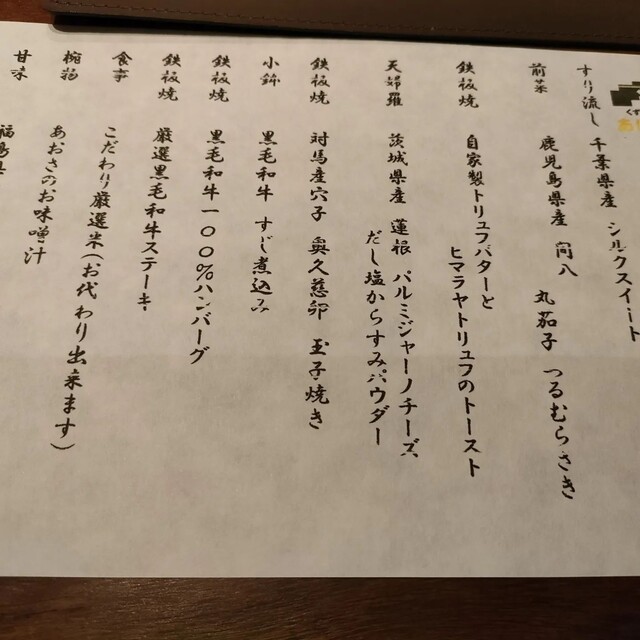 すり流し 千葉県産 シルクスイート
前菜 鹿児島県産 間八 丸茄子 つるむらさき
鉄板焼 自家製トリュフバターと
ヒマラヤトリュフのトースト
天婦羅 茨城県産 蓮根 パルミジャーノチーズ
だし塩からすみパウダー
鉄板焼 対馬産穴子 奥久慈卵 玉子焼き
小鉢 黒毛和牛 すじ煮込み
鉄板焼 黒毛和牛一〇〇%ハンバーグ
鉄板焼 厳選黒毛和牛ステーキ
食事 こだわり厳選米(お代わり出来ます)
椀物 あおさのお味噌汁
甘味 福島県